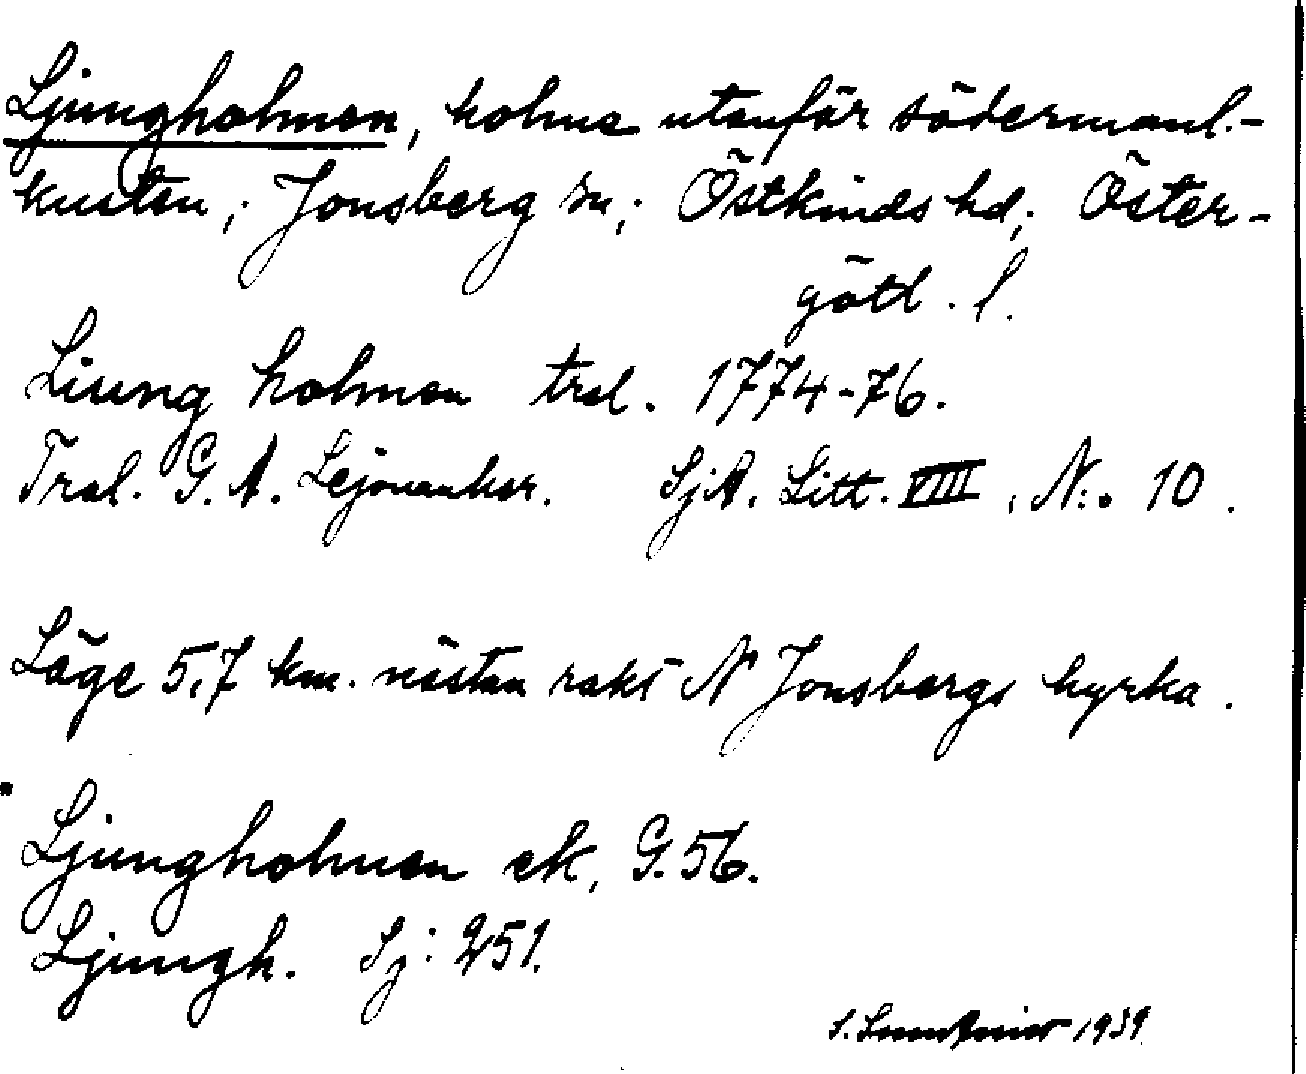 Ljungholmen, holme utanför södermanl.-
kusten; Jonsberg sn; Östkinds hd; Öster-
götl. l.
Liung holmen tral. 1774-76.
Tral. G. A. Lejonanker. SjA. Litt. VIII, N:o 10.
Läge 5,7 km. nästan rakt N Jonsbergs kyrka.
Ljungholmen ek, G. 56.
Ljungh. Sj: 251.
S. 1939